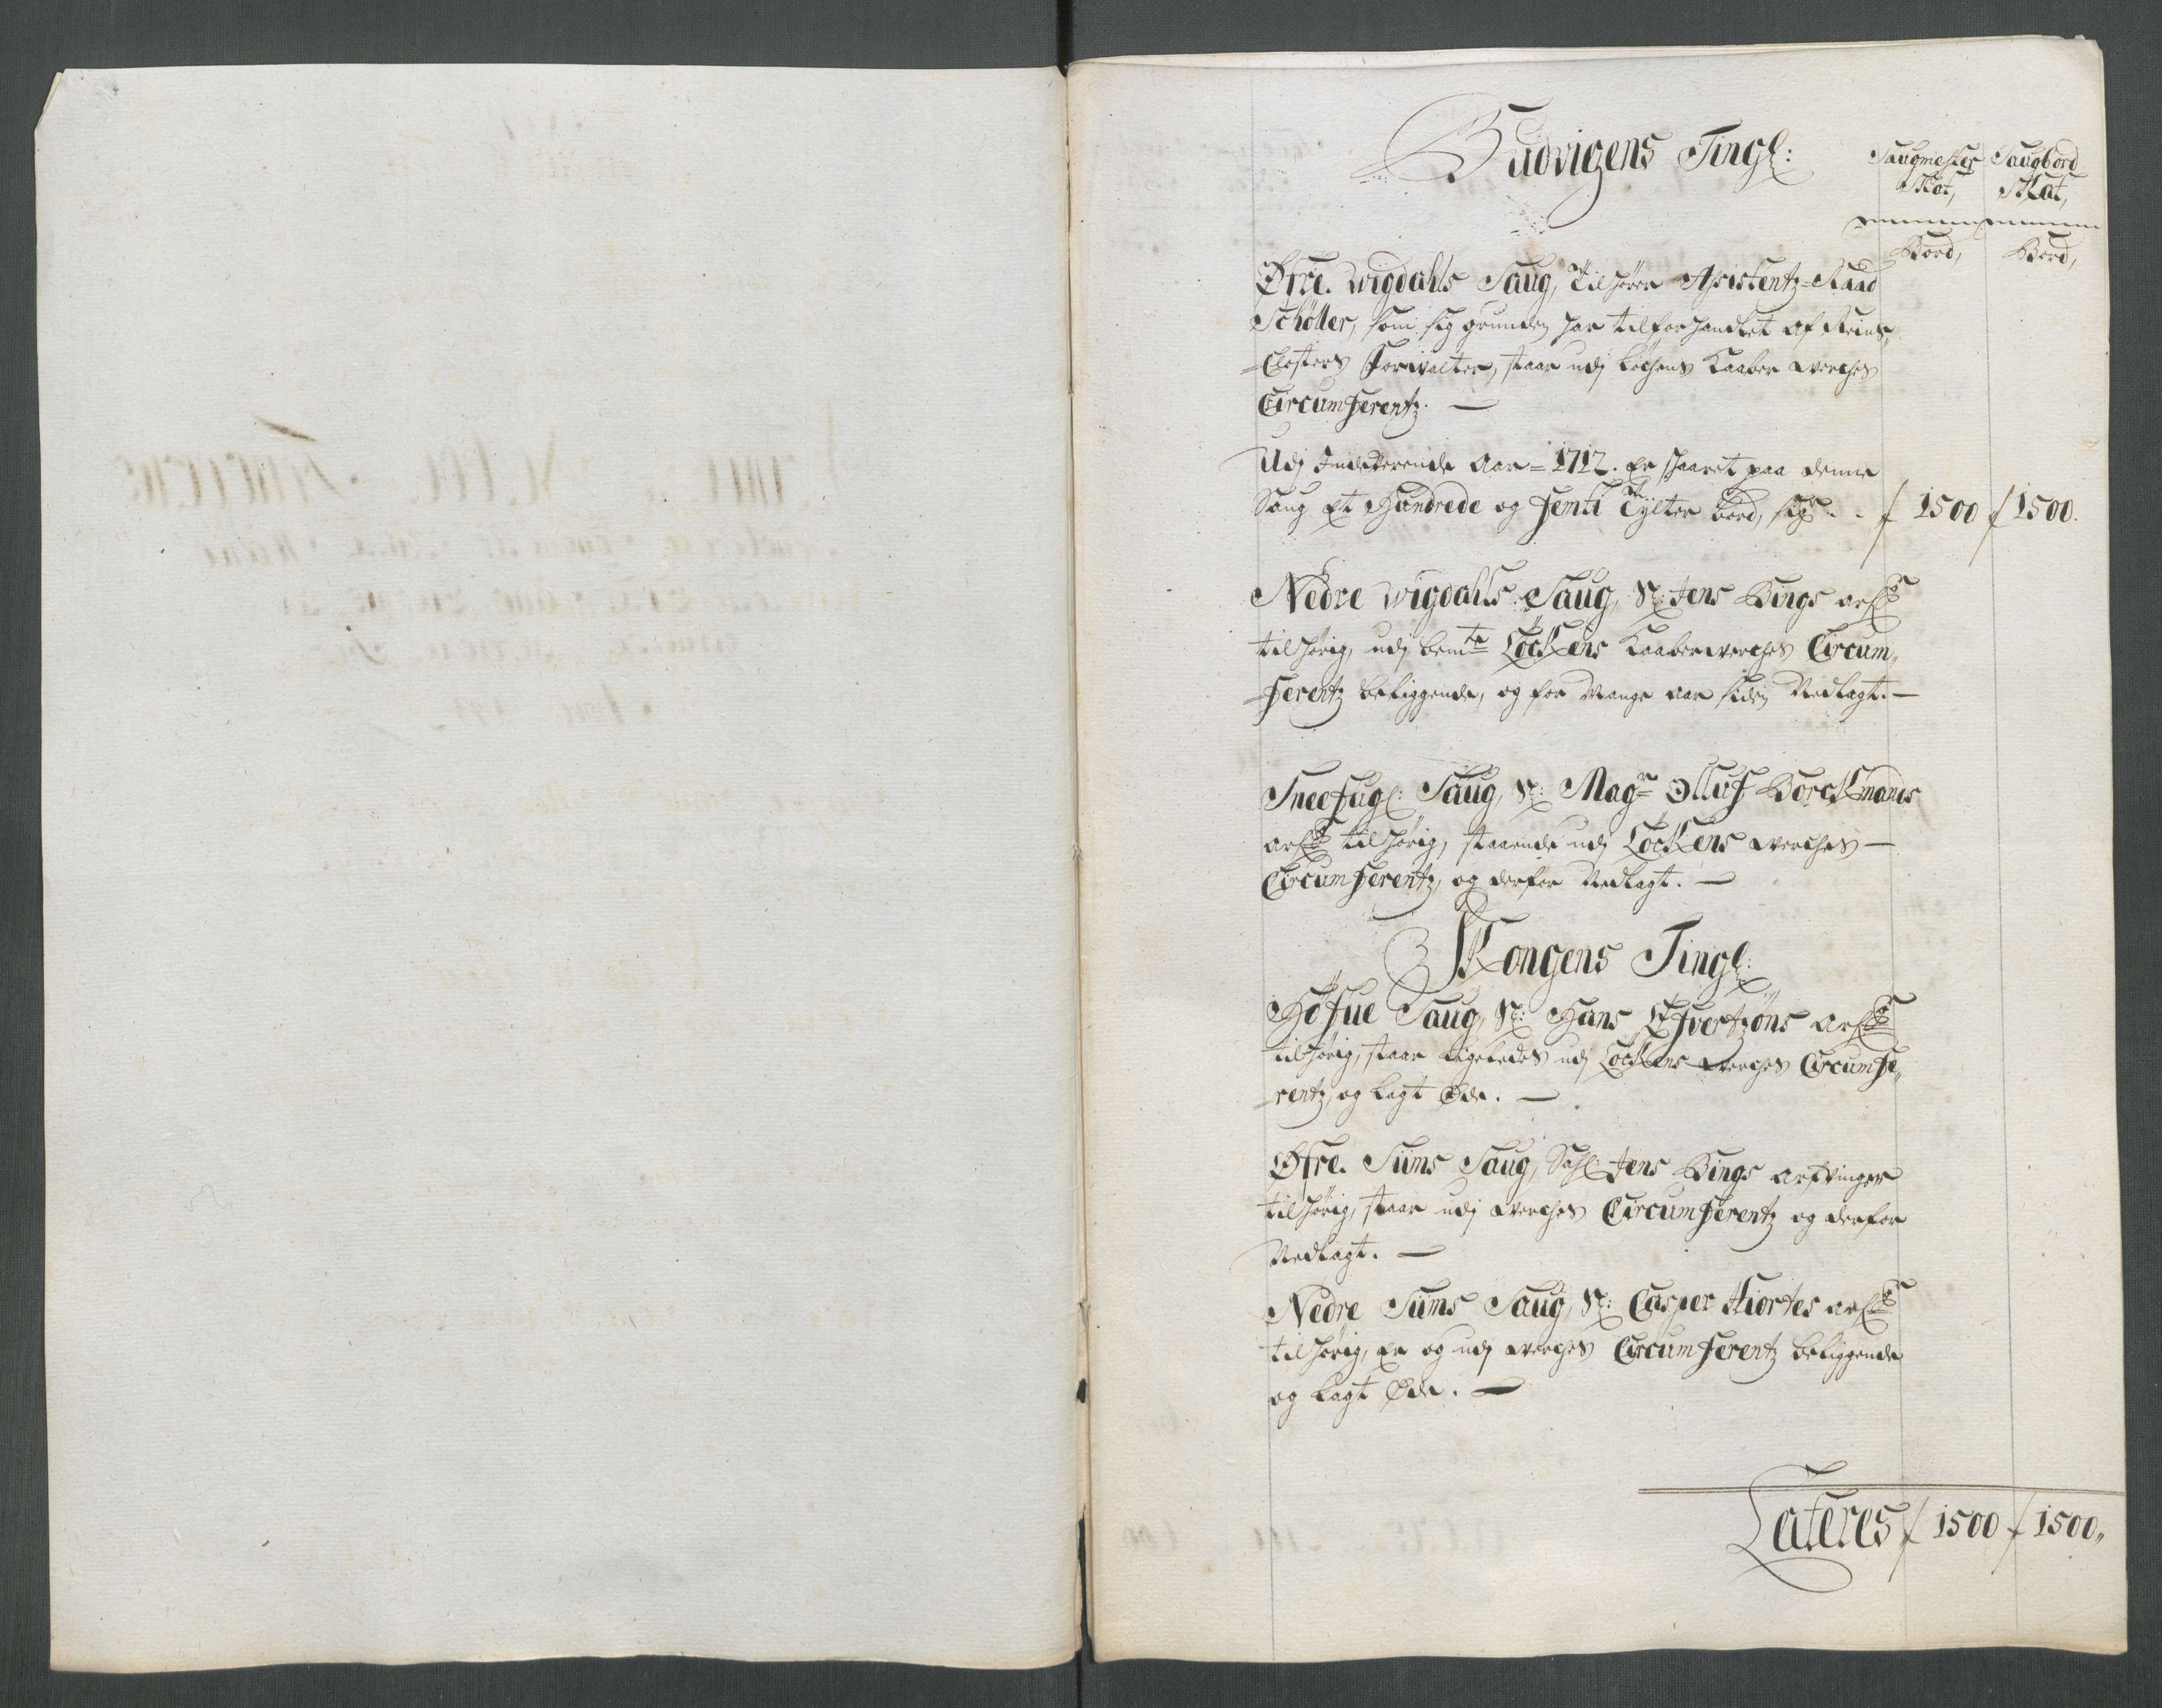 Budvigens Tingl:
Saugmester Skat, Saugbord Skat,
Bord, Bord,
Øfre. Wigdahls Saug, Tilhører Assistentz-Raad
Schøller, som sig grunden har tilforhandlet af Reins,
Closters Forvalter, staar udj Løchens Kaaber Werches
Circumferentz. —
Udj Indeværende Aar = 1712. Er skaaret paa denne
Saug Et Hundrede og femti Tylter bord, sigr. . 1500 1500.
Nedre Wigdahls Saug, Sl: Jens Bings arf:
tilhørig, udj bemte Löckens Kaaberwerches Circum,,
ferentz beliggende, og for Mange aar siden Nedlagt. —
Sneefugl: Saug, Sl: Magr Olluf Borckmands
arf: tilhørig, staaende udj Löckens Werches —
Circumferentz, og derfor Nedlagt. —
Skongens Tingl:
Höfue Saug, Sl: Hans Efvertzöns arf:
tilhørig, staar ligeledes udj Löckens Werches Circumfe,,
rentz, og lagt Øde. —
Øfre. Sums Saug, Sahl: Jens Bings arfvinger
tilhørig, staar udj Werches Circumferentz og derfor
Nedlagt. —
Nedre Sums Saug, Sl: Casper Hiortes arf:
tilhørig, Er og udj Werches Circumferentz beliggende
og lagt Øde. —
Lateres 1500 1500,,